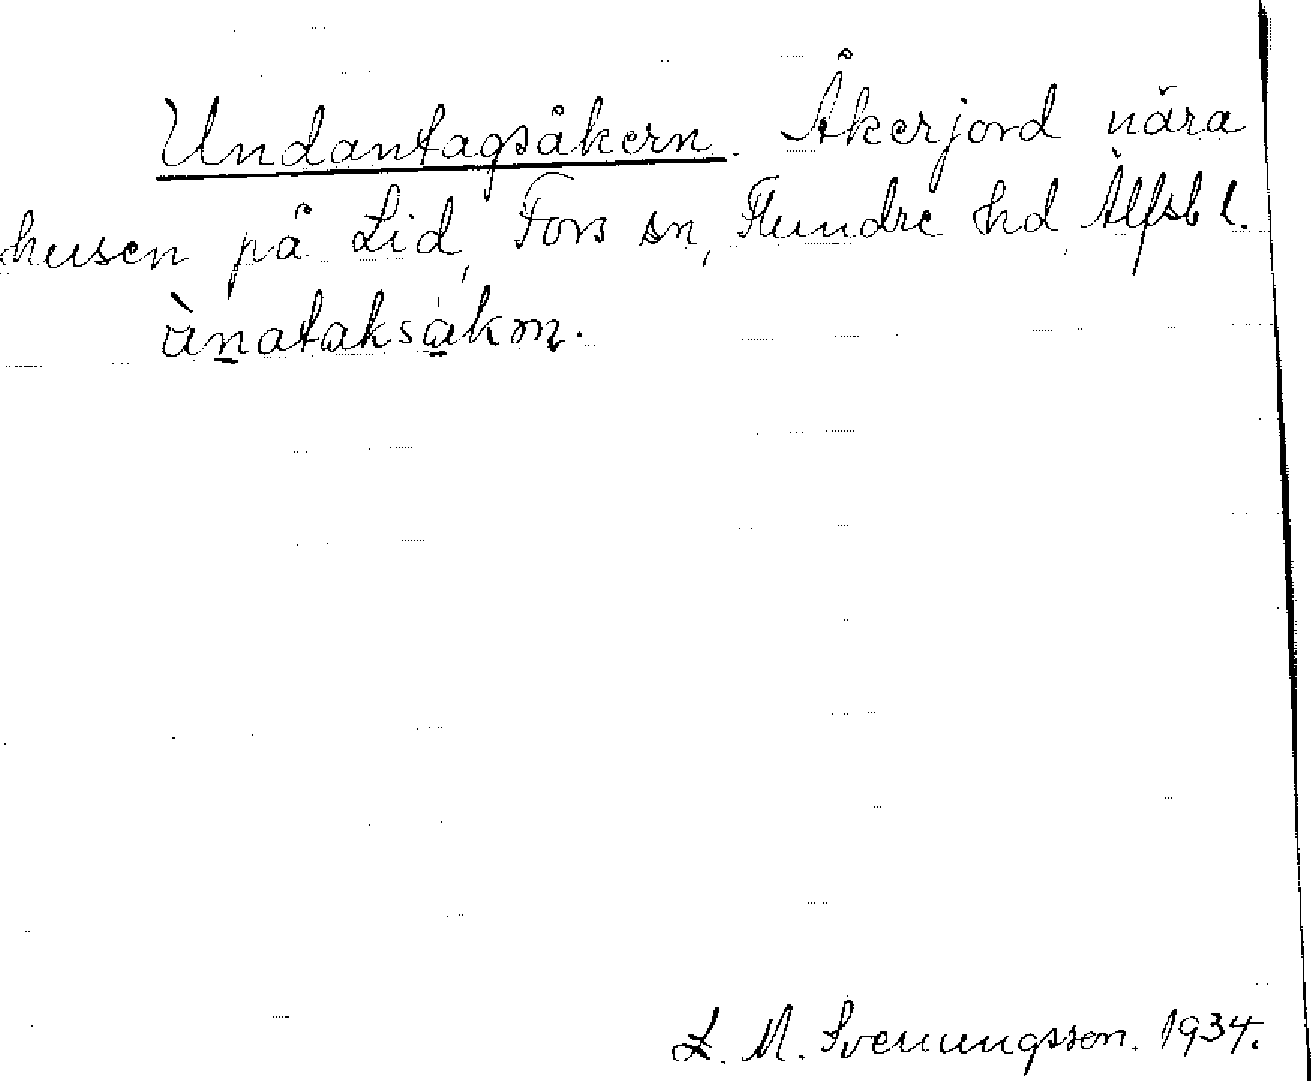 Undantagsåkern. Åkerjord nära
husen på Lid, Fors sn, Flundre hd, Älfsb l.
L. M. Svenungsson. 1934.